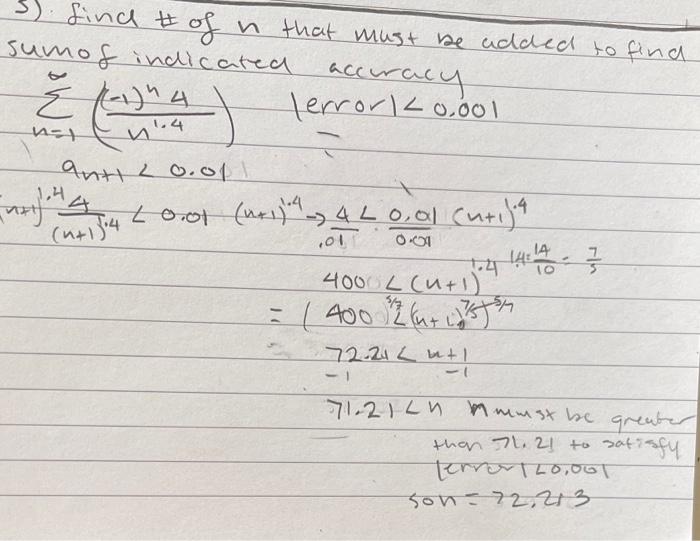 5). find # of n that must be added to find
sum of indicated accuracy
∞
Σ ((-1)^n 4 / n^1.4) |error| < 0.001
n=1
a_n+1 < 0.01
(n+1)^1.4 4/(n+1)^1.4 < 0.01 (n+1)^1.4 → 4/.01 < 0.01/0.01 (n+1)^1.4
400 < (n+1)^1.4 1.4 = 14/10 = 7/5
= (400)^5/7 < (n+1)^7/5)^5/7
72.21 < n+1
-1 -1
71.21 < n n must be greater
than 71.21 to satisfy
|error| < 0.001
so n = 72,213